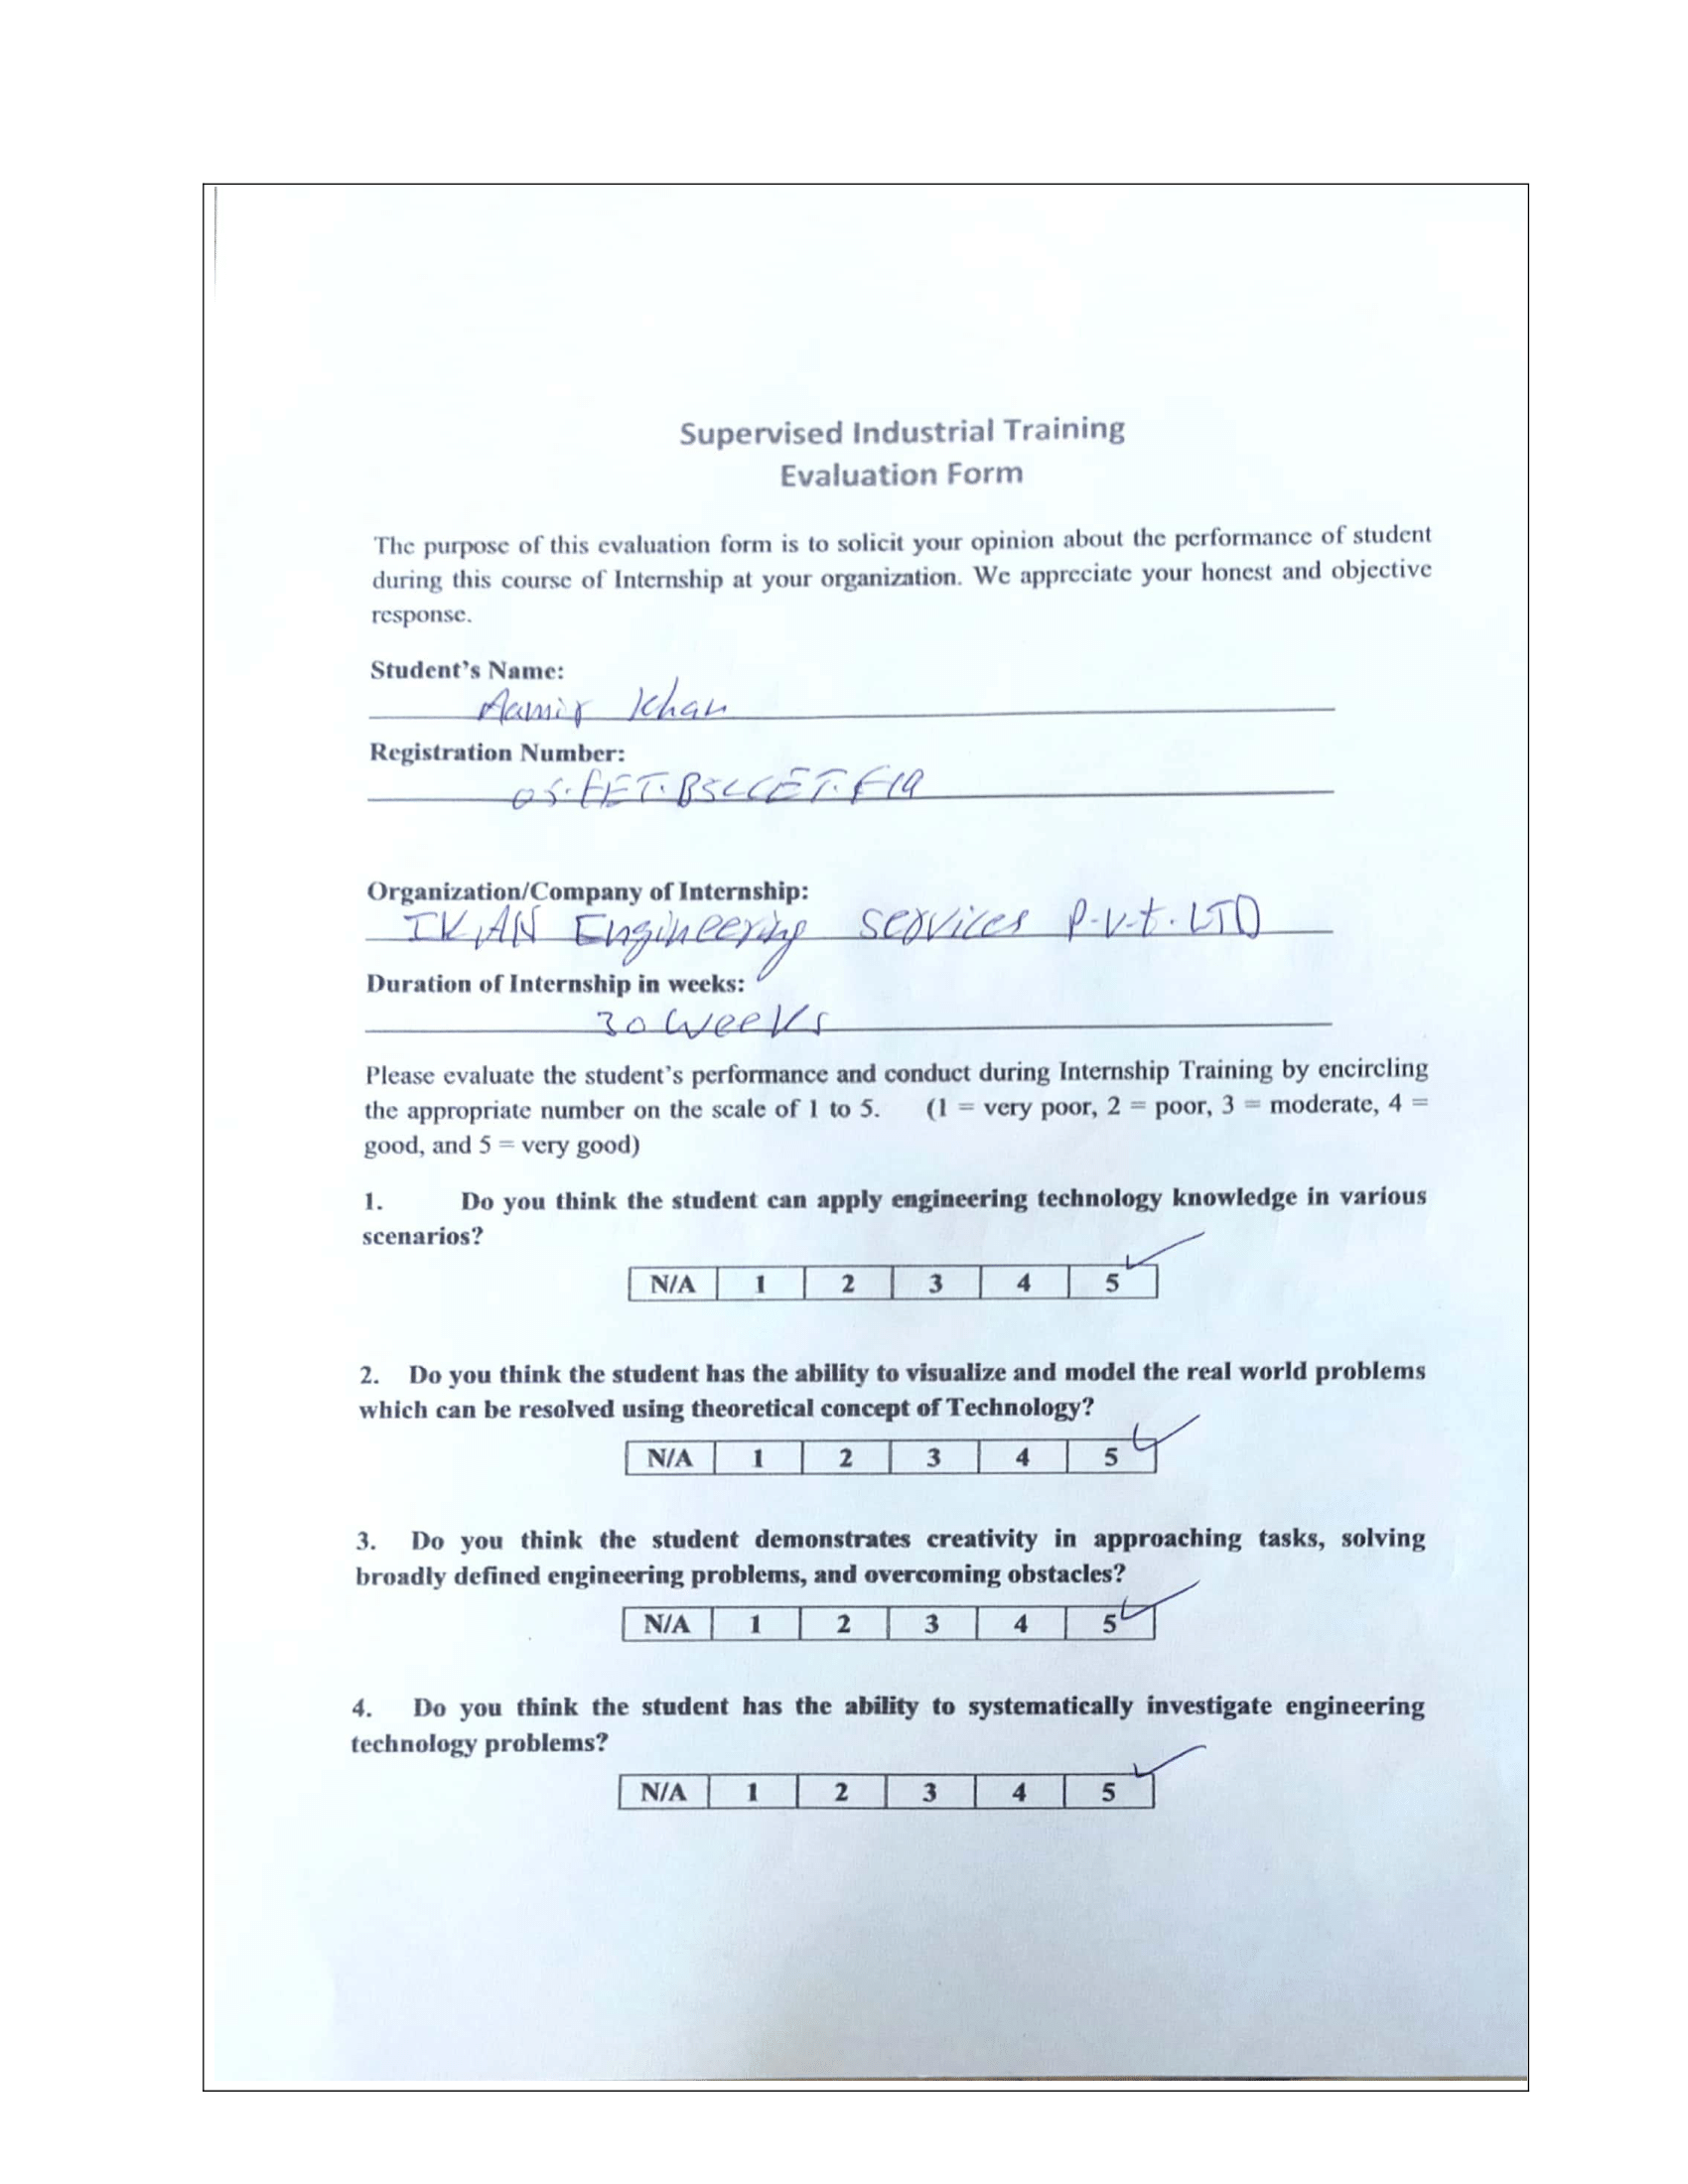 Supervised Industrial Training
Evaluation Form
The purpose of this evaluation form is to solicit your opinion about the performance of student
during this course of Internship at your organization. We appreciate your honest and objective
response.
Student's Name:
Aamir Khan
Registration Number:
Organization/Company of Internship:
Engineering Services P.v.t. LTD
Duration of Internship in weeks:
30 Weeks
Please evaluate the student's performance and conduct during Internship Training by encircling
the appropriate number on the scale of 1 to 5. (1 = very poor, 2 = poor, 3 = moderate, 4 =
good, and 5 = very good)
1. Do you think the student can apply engineering technology knowledge in various
scenarios?
N/A 1 2 3 4 5
2. Do you think the student has the ability to visualize and model the real world problems
which can be resolved using theoretical concept of Technology?
N/A 1 2 3 4 5
3. Do you think the student demonstrates creativity in approaching tasks, solving
broadly defined engineering problems, and overcoming obstacles?
N/A 1 2 3 4 5
4. Do you think the student has the ability to systematically investigate engineering
technology problems?
N/A 1 2 3 4 5